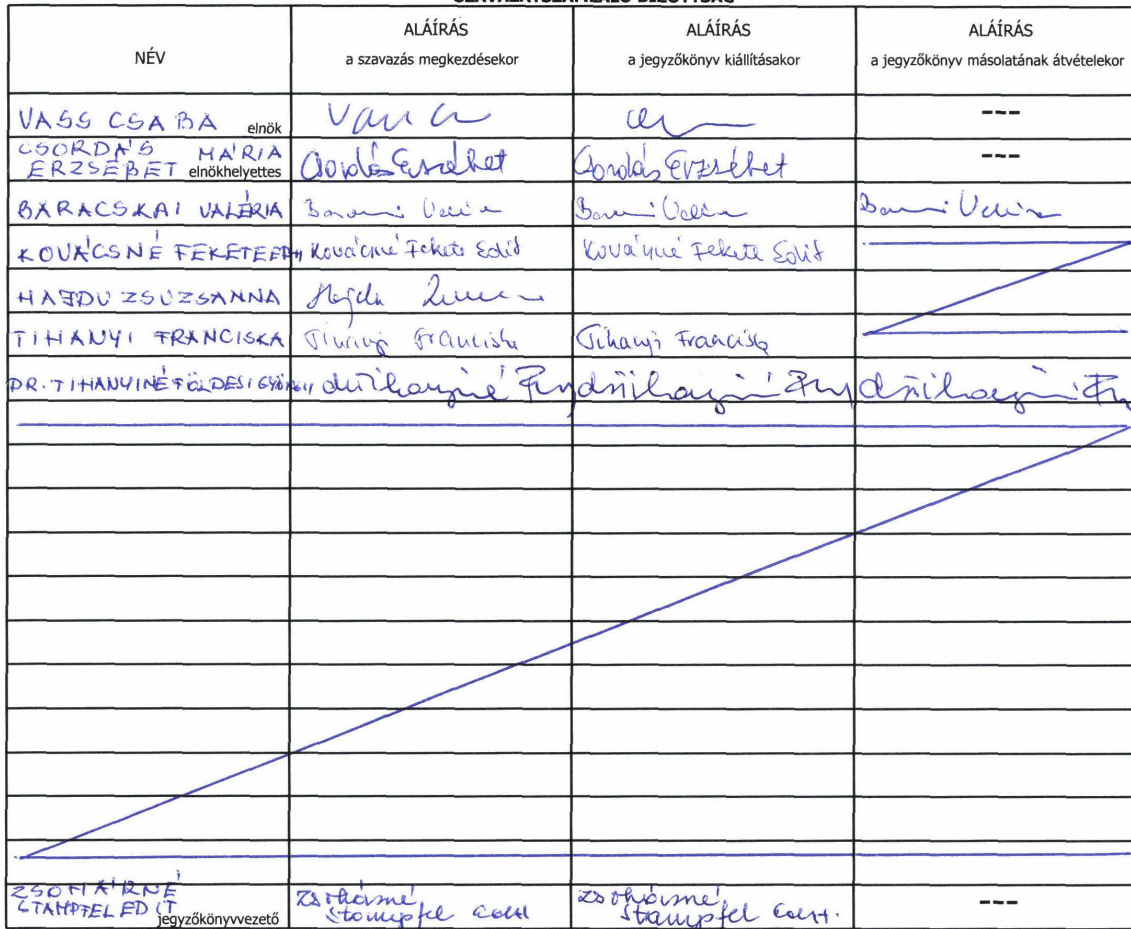 NÉV
ALÁÍRÁS
a szavazás megkezdésekor
ALÁÍRÁS
a jegyzőkönyv kiállításakor
ALÁÍRÁS
a jegyzőkönyv másolatának átvételekor
VASS CSABA elnök
---
CSORDÁS MÁRIA
ERZSÉBET elnökhelyettes Csordás Erzsébet Csordás Erzsébet ---
BARACSKAI VALÉRIA
KOVÁCSNÉ FEKETE EDIT Kovácsné Fekete Edit Kovácsné Fekete Edit
HAJDU ZSUZSANNA Hajdu
TIHANYI FRANCISKA Tihanyi Franciska Tihanyi Franciska
DR. TIHANYINÉ FÖLDESI drtihanyiné drtihanyiné drtihanyiné
ZSOHÁRNÉ
STAMPFEL EDIT jegyzőkönyvvezető
Zsohárné
Stampfel Edit
Zsohárné
Stampfel Edit
---